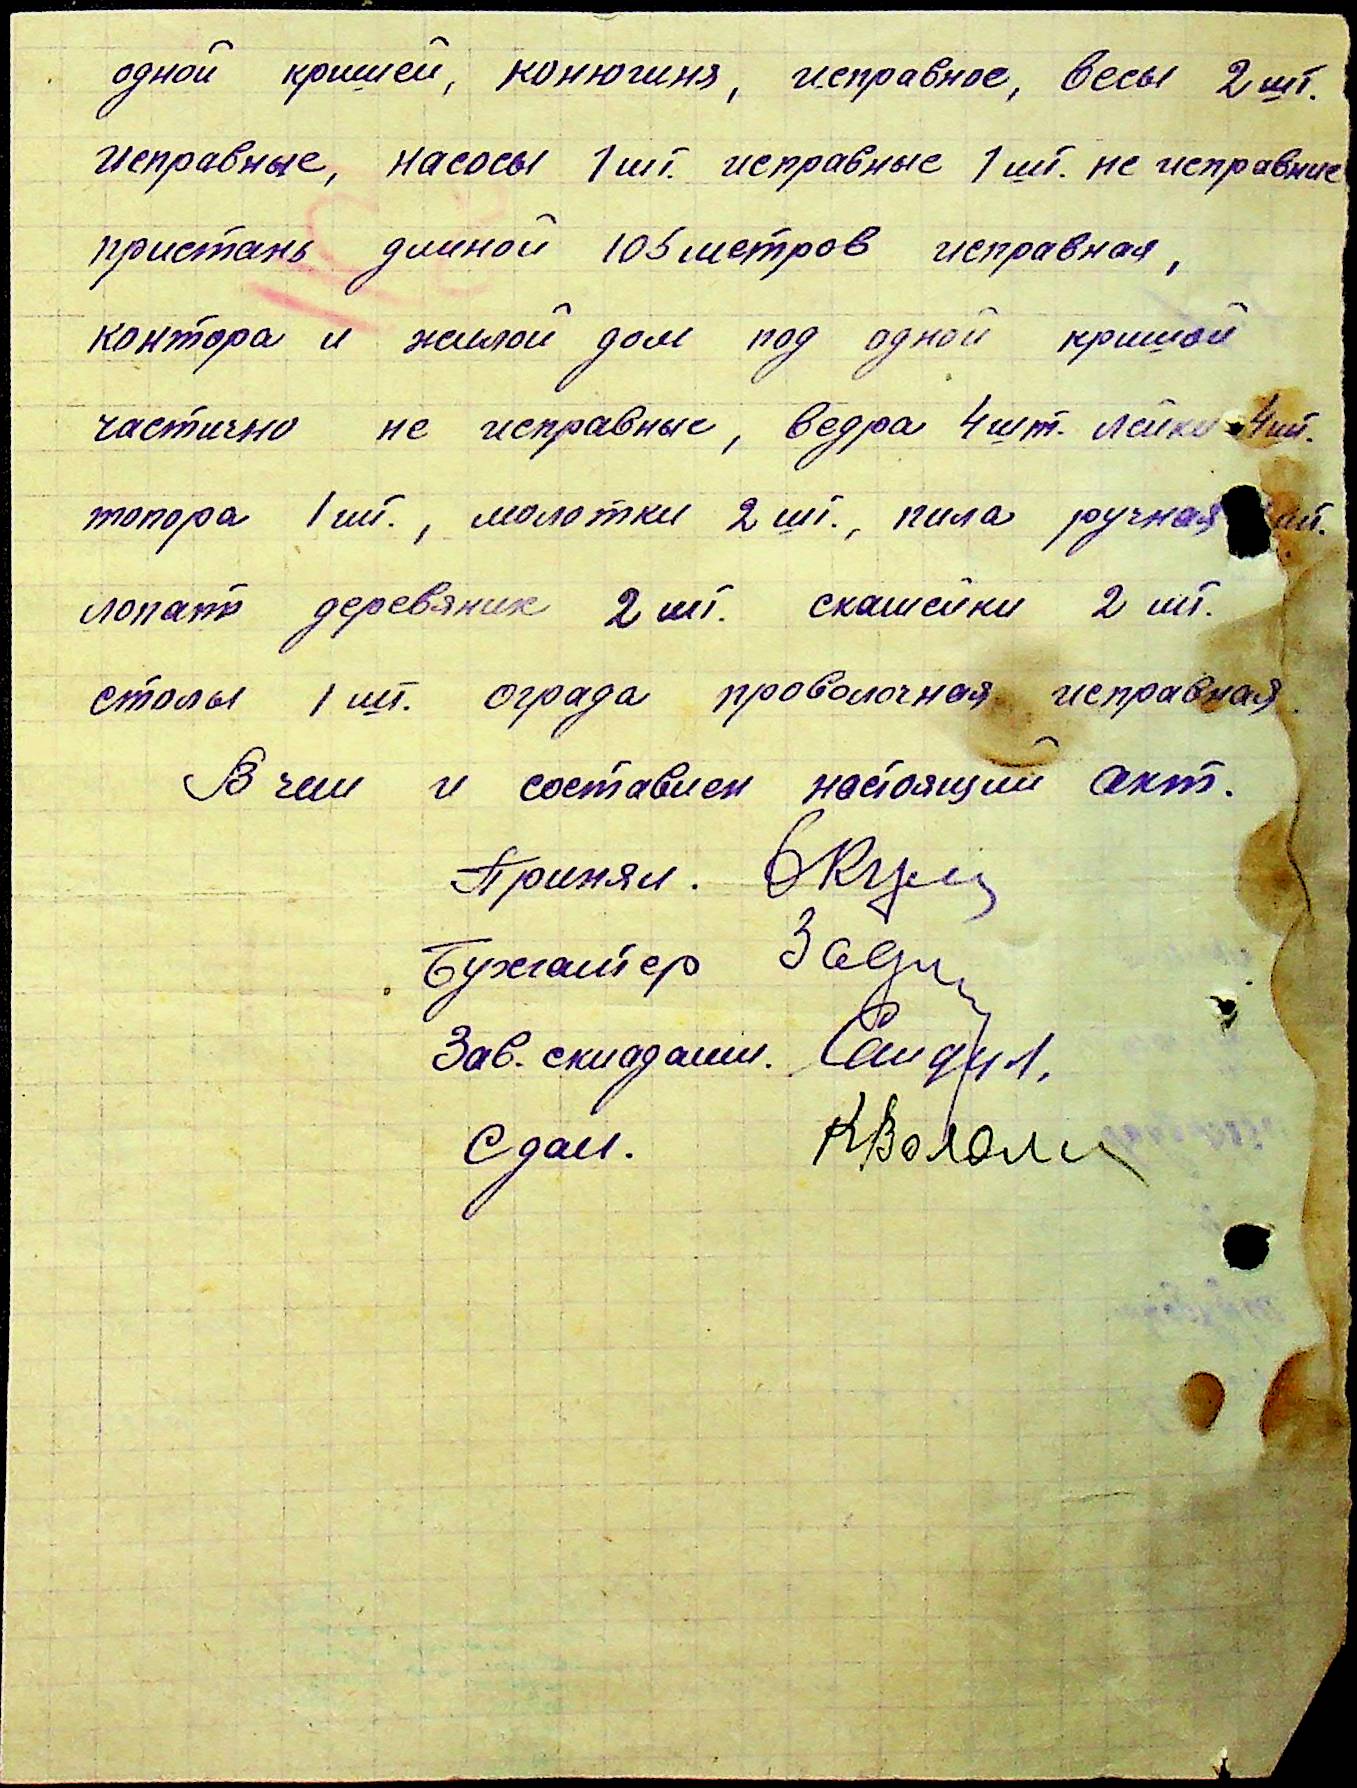 одной кришей, конюгиня, исправное, весы 2 шт.
исправные, насосы 1 шт. исправные 1 шт. не исправние
пристань длиной 105 метров исправная,
контора и жилой дом под одной кришой
частично не исправные, ведра 4 шт. лейки 4 шт.
топора 1 шт., молотки 2 шт., пила ручная шт.
лопати деревяник 2 шт. скашейки 2 шт.
столы 1 шт. ограда проволочная исправная.
В чем и составлен настоящий акт.
Принял.
Бухгалтер
Зав. складами.
Сдал.